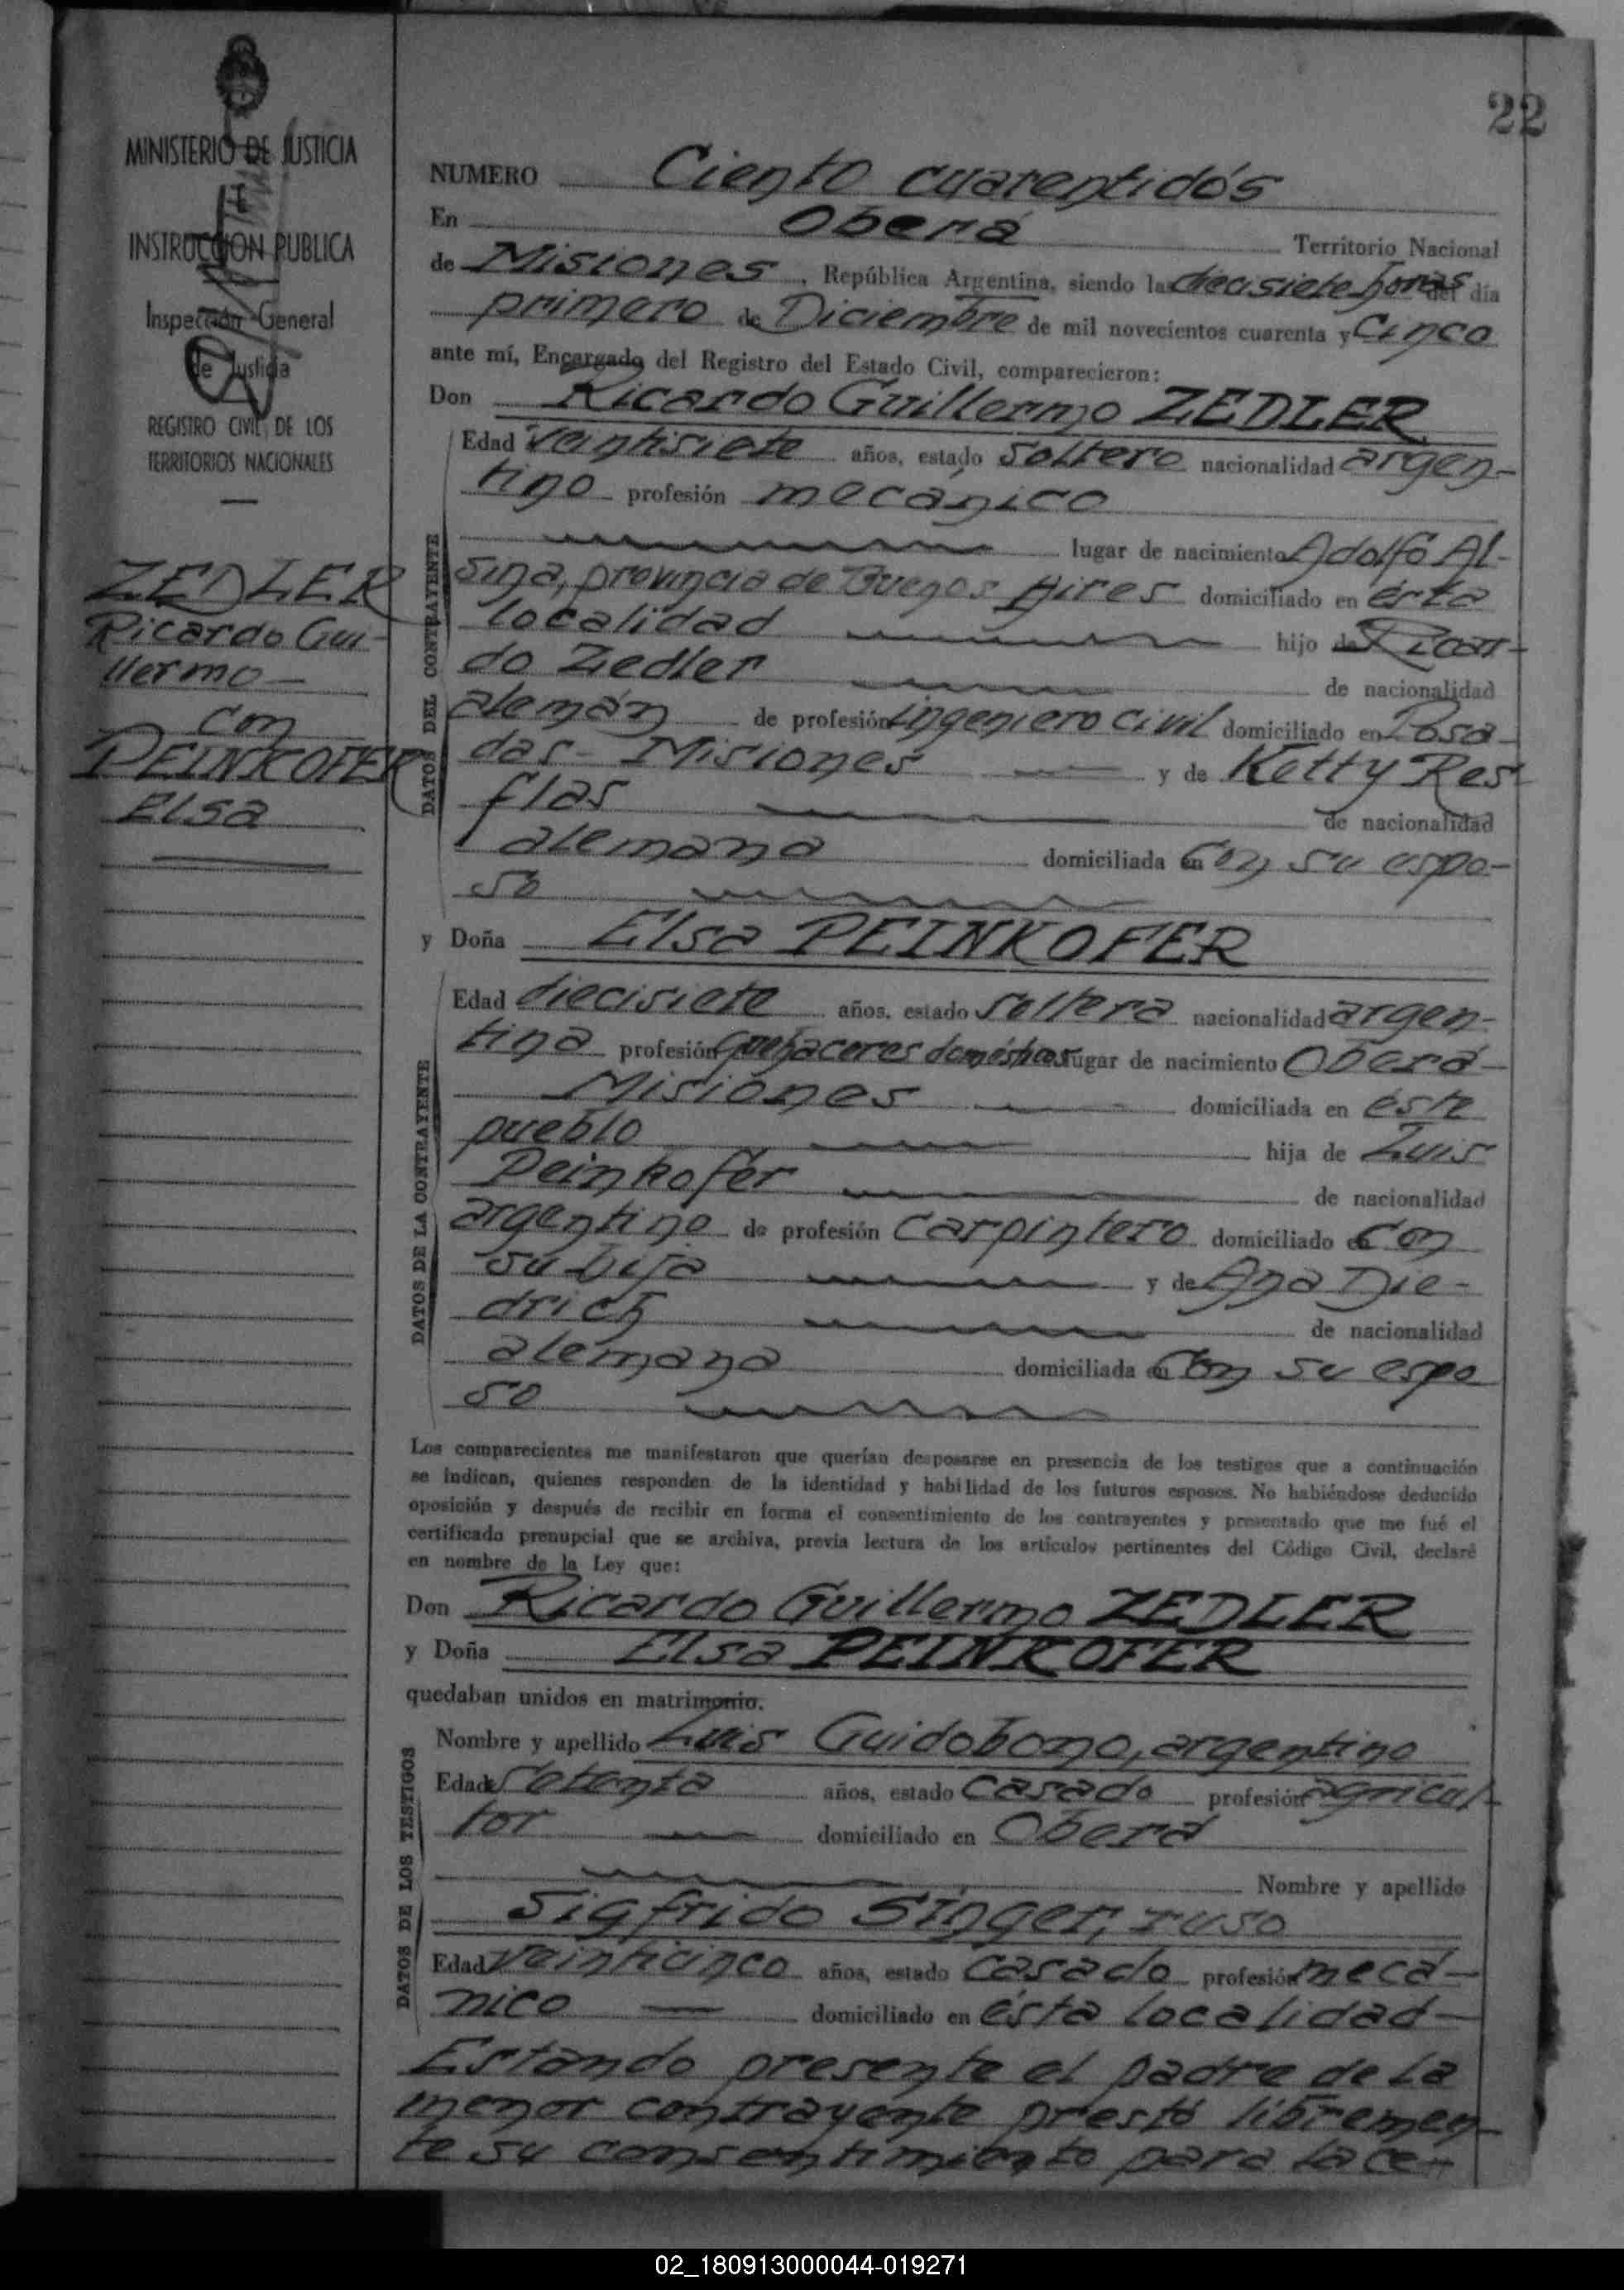 22
MINISTERIO DE JUSTICIA
E
INSTRUCCION PUBLICA
Inspección General
de Justicia
REGISTRO CIVIL DE LOS
TERRITORIOS NACIONALES
ZEDLER
Ricardo Gui-
llermo
con
PEINKOFER
Elsa
NUMERO Ciento cuarentidós
En Oberá Territorio Nacional
de Misiones, República Argentina, siendo las diecisiete horas del día
primero de Diciembre de mil novecientos cuarenta y Cinco
ante mí, Encargado del Registro del Estado Civil, comparecieron:
Don Ricardo Guillermo ZEDLER
DATOS DEL CONTRAYENTE
Edad veintisiete años, estado soltero nacionalidad argen-
tino profesión mecánico
lugar de nacimiento Adolfo Al-
sina, provincia de Buenos Aires domiciliado en ésta
localidad hijo de Ricar-
do Zedler de nacionalidad
alemán de profesión ingeniero civil domiciliado en Posa-
das - Misiones y de Ketty Res-
flas de nacionalidad
alemana domiciliada en con su espo-
so
y Doña Elsa PEINKOFER
DATOS DE LA CONTRAYENTE
Edad diecisiete años, estado soltera nacionalidad argen-
tina profesión quehaceres domésticos lugar de nacimiento Oberá-
Misiones domiciliada en éste
pueblo hija de Luis
Peinkofer de nacionalidad
argentino de profesión carpintero domiciliado en con
su hija y de Ana Die-
drich de nacionalidad
alemana domiciliada en con su espo
so
Los comparecientes me manifestaron que querían desposarse en presencia de los testigos que a continuación
se indican, quienes responden de la identidad y habilidad de los futuros esposos. No habiéndose deducido
oposición y después de recibir en forma el consentimiento de los contrayentes y presentado que me fué el
certificado prenupcial que se archiva, previa lectura de los artículos pertinentes del Código Civil, declaré
en nombre de la Ley que:
Don Ricardo Guillermo ZEDLER
y Doña Elsa PEINKOFER
quedaban unidos en matrimonio.
DATOS DE LOS TESTIGOS
Nombre y apellido Luis Guidobono, argentino
Edad setenta años, estado casado profesión agricul-
tor domiciliado en Oberá
Nombre y apellido
Sigfrido Singer, ruso
Edad veinticinco años, estado casado profesión mecá-
nico domiciliado en ésta localidad
Estando presente el padre de la
menor contrayente prestó libremen-
te su consentimiento para la ce-
02_180913000044-019271